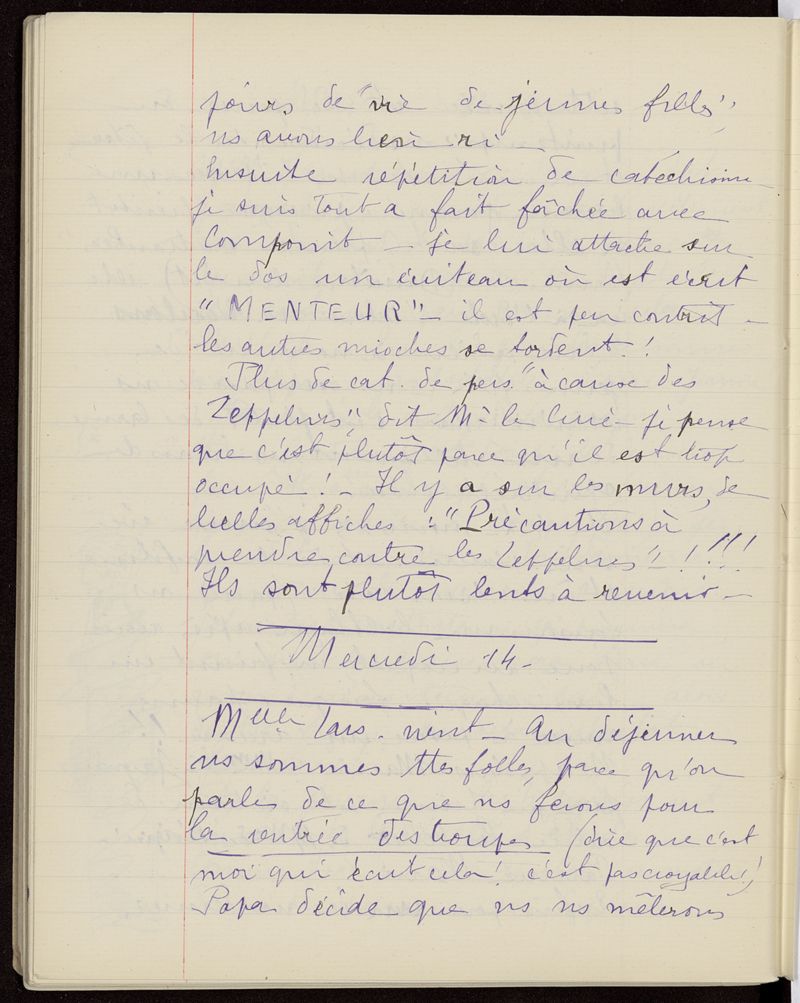 jours de "vie de jeunes filles",
ns avons bien ri _
Ensuite répétition de catéchisme _
je suis tout a fait fâchée avec
_ je lui attache sur
le dos un écriteau où est écrit
"MENTEUR" _ il est peu contrit _
les autres mioches se tordent !
Plus de cat. de pers. "à cause des
Zeppelins", dit M. le Curé _ je pense
que c'est plutôt parce qu'il est trop
occupé ! _ Il y a sur les murs, de
belles affiches : "Précautions à
prendre contre les Zeppelins" ! ! ! !
Ils sont plutôt lents à revenir _
Mercredi 14 _
Melle Lars. vient _ Au déjeuner
ns sommes ttes folles, parce qu'on
parle de ce que ns ferons pour
la rentrée des troupes (dire que c'est
moi qui écrit cela ! c'est pas croyable !)
Papa décide que ns ns mêlerons